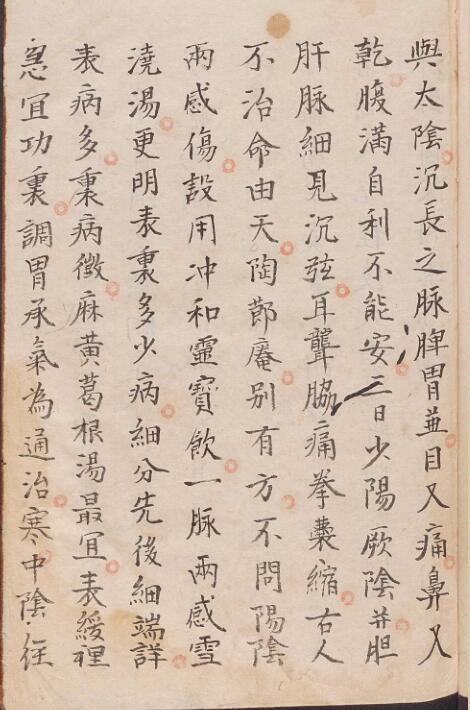 與太陰沉長之脉脾胃並目又痛鼻又
乾腹滿自利不能安三日少陽厥陰並胆
肝脉細見沉弦耳聾脇痛拳囊縮右人
不治命由天陶節庵別有方不問陽陰
兩感傷設用冲和靈寶飲一脉兩感雪
澆湯更明表裏多少病細分先後細端詳
表病多裏病微麻黃葛根湯最宜表緩裡
急宜功裏調胃承氣為通治寒中陰経